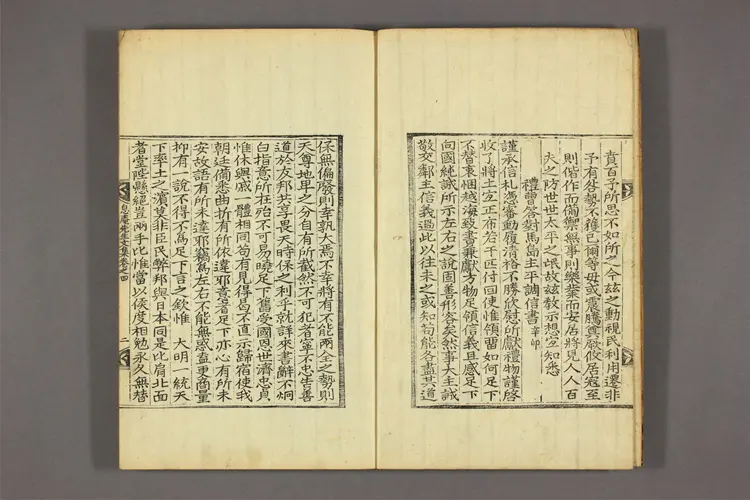 賁百予所思不如所之今玆之動視民利用遷非
予有咎勢不獲已爾等毋或震騰奠厥攸居寇至
則偕作而備禦無事則樂業而安居將見人人百
夫之防世世太平之氓故玆敎示想宜知悉
禮曹答對馬島主平調信書 辛卯
謹承信札憑審動履清裕不勝欣慰所獻禮物謹啓
收了將土宜正布若干匹付回使惟領留如何足下
不替衷悃越海致書兼獻方物足領信義且感足下
向國純誠所示左右之說固善形容矣然事大主誠
敬交鄰主信義過此以往未之或知苟能各盡其道
保無偏廢則幸孰大焉不幸將有不能兩全之勢則
天尊地卑之分自有所截然不可犯者寧不忠告善
道於友邦共享畏天時保之利乎就詳來書辭不炯
白指意所在殆不可易曉足下舊受國恩世濟忠貞
惟休與戚一體相同苟有見得曷不直示歸宿使我
朝廷備悉曲折有所依違耶意者足下亦心有所未
安故語有所未達邪竊爲左右不能無感盍更商量
抑有一說不得不爲足下言之欽惟 大明一統天
下率土之濱莫非臣民弊邦與日本同是比肩北面
者堂陛縣絕豈兩手比惟當以侯度相勉永久無替
息庵先生文集卷之四
二